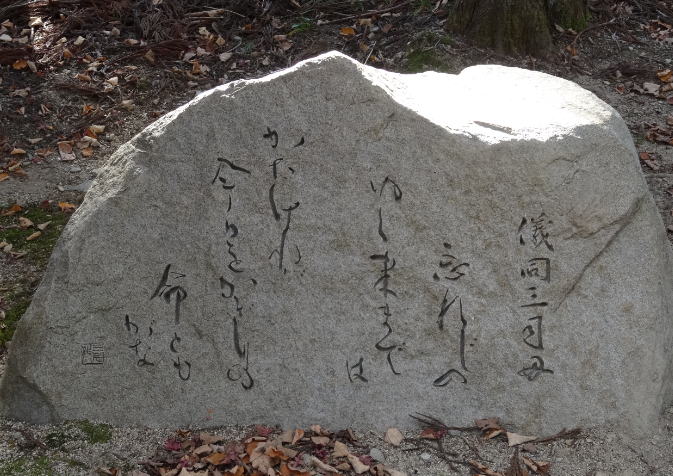 儀同三司母
忘れじの
ゆく末まで
は
かたければ
今日をかぎりの
命とも
がな